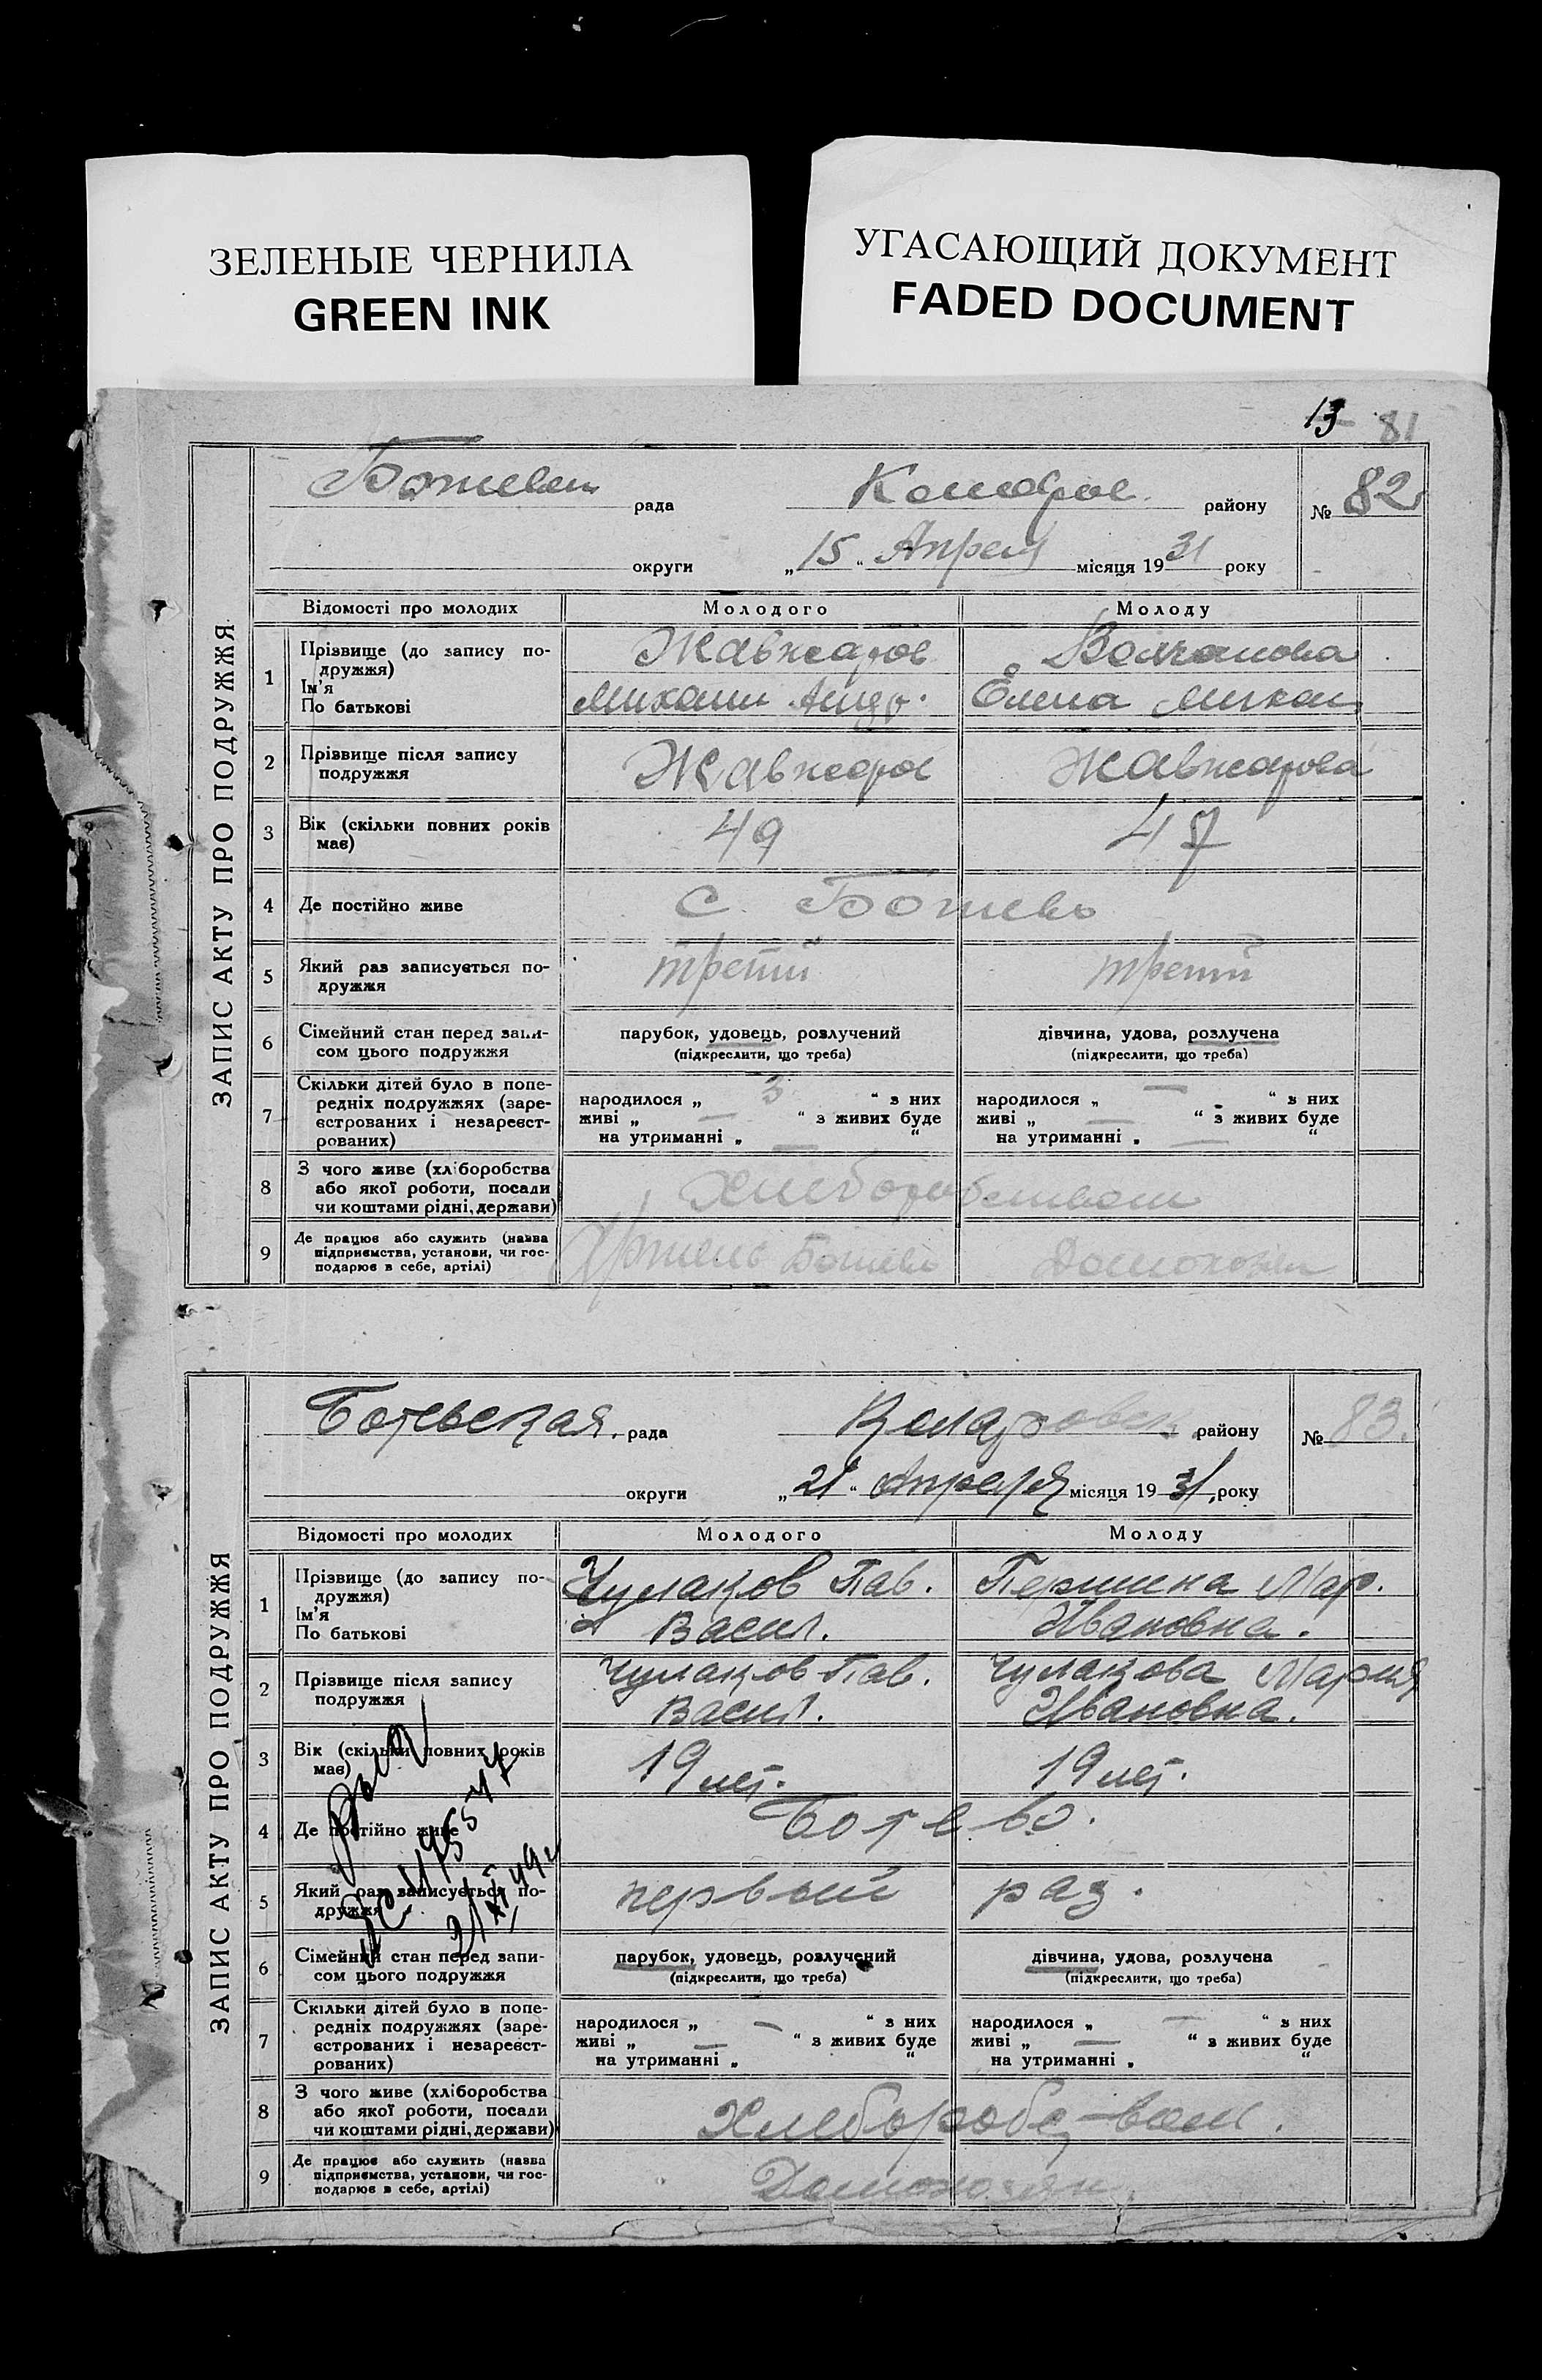 ЗЕЛЕНЫЕ ЧЕРНИЛА
GREEN INK
УГАСАЮЩИЙ ДОКУМЕНТ
FADED DOCUMENT
13 81
ЗАПИС АКТУ ПРО ПОДРУЖЖЯ
рада району № 82
округи „15“ Апреля місяця 1931 року
Відомості про молодих Молодого Молоду
1 Прізвище (до запису по-
дружжя)
Ім'я
По батькові
Жавжаров Волчанова
Михаил Елена
2 Прізвище після запису
подружжя
Жавжаров Жавжарова
3 Вік (скільки повних років
має)
49 47
4 Де постійно живе с. Ботево
5 Який раз записується по-
дружжя
третий третий
6 Сімейний стан перед запи-
сом цього подружжя
парубок, удовець, розлучений
(підкреслити, що треба)
дівчина, удова, розлучена
(підкреслити, що треба)
7 Скільки дітей було в попе-
редніх подружжях (заре-
єстрованих і незареєст-
рованих)
народилося „ 3 “ з них
живі „ — “ з живих буде
на утриманні „ — “
народилося „ — “ з них
живі „ — “ з живих буде
на утриманні „ — “
8 З чого живе (хліборобства
або якої роботи, посади
чи коштами рідні, держави)
9 Де працює або служить (назва
підприємства, установи, чи гос-
подарює в себе, артілі)
Артель Ботево
ЗАПИС АКТУ ПРО ПОДРУЖЖЯ
Ботьевская рада району № 83.
округи „21“ Апреля місяця 1931, року
Відомості про молодих Молодого Молоду
1 Прізвище (до запису по-
дружжя)
Ім'я
По батькові
Чумаков Пав. Першина Мар.
Васил. Ивановна.
2 Прізвище після запису
подружжя
Чумаков Пав. Чумакова Мария
Васил. Ивановна.
3 Вік (скільки повних років
має)
19 лет. 19 лет.
4 Де постійно живе Ботево.
5 Який раз записується по-
дружжя
первый раз.
6 Сімейний стан перед запи-
сом цього подружжя
парубок, удовець, розлучений
(підкреслити, що треба)
дівчина, удова, розлучена
(підкреслити, що треба)
7 Скільки дітей було в попе-
редніх подружжях (заре-
єстрованих і незареєст-
рованих)
народилося „ — “ з них
живі „ — “ з живих буде
на утриманні „ “
народилося „ — “ з них
живі „ — “ з живих буде
на утриманні „ “
8 З чого живе (хліборобства
або якої роботи, посади
чи коштами рідні, держави)
9 Де працює або служить (назва
підприємства, установи, чи гос-
подарює в себе, артілі)